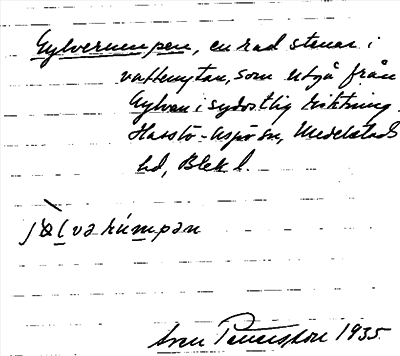 Gylverumpen, en rad stenar i
vattenytan, som utgå från
Gylven i sydostlig riktning.
Hasslö-Aspö sn, Medelstads
hd, Blek. l.
Sven 1935